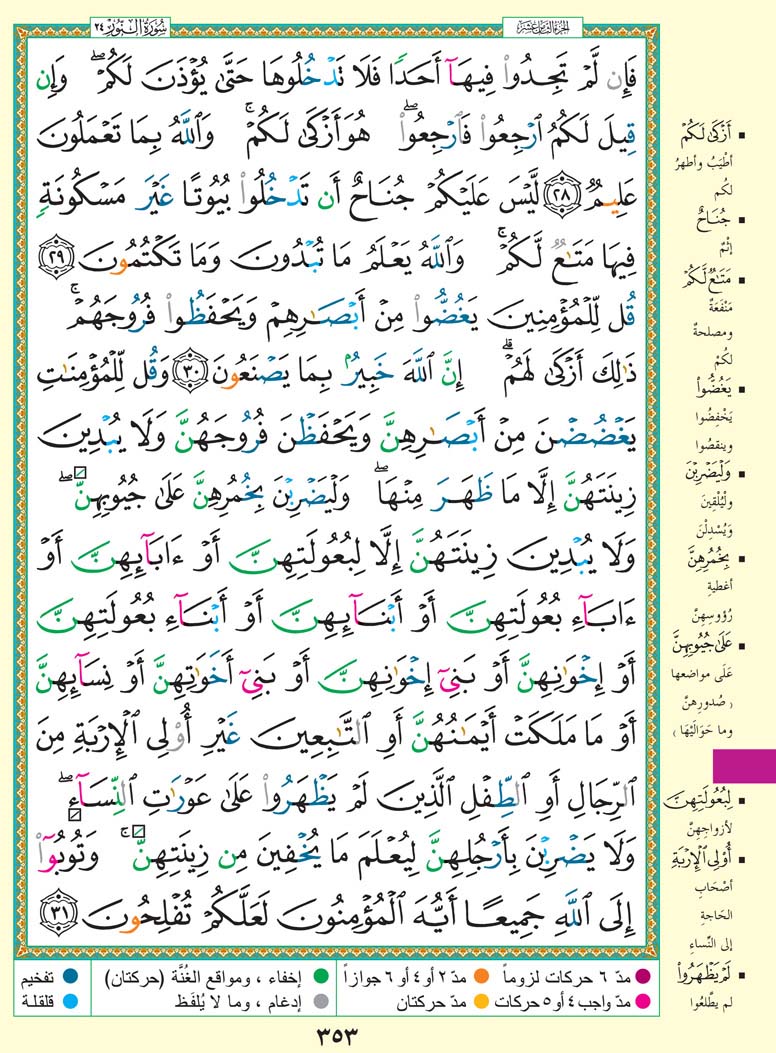 سُورَةُ النُّورِ ٢٤
الجُزءُ الثَّامِنَ عَشَرَ
فَإِن لَّمْ تَجِدُواْ فِيهَآ أَحَدٗا فَلَا تَدۡخُلُوهَا حَتَّىٰ يُؤۡذَنَ لَكُمۡۖ وَإِن
قِيلَ لَكُمُ ٱرۡجِعُواْ فَٱرۡجِعُواْۖ هُوَ أَزۡكَىٰ لَكُمۡۚ وَٱللَّهُ بِمَا تَعۡمَلُونَ
عَلِيمٞ ٢٨ لَّيۡسَ عَلَيۡكُمۡ جُنَاحٌ أَن تَدۡخُلُواْ بُيُوتًا غَيۡرَ مَسۡكُونَةٖ
فِيهَا مَتَٰعٞ لَّكُمۡۚ وَٱللَّهُ يَعۡلَمُ مَا تُبۡدُونَ وَمَا تَكۡتُمُونَ ٢٩
قُل لِّلۡمُؤۡمِنِينَ يَغُضُّواْ مِنۡ أَبۡصَٰرِهِمۡ وَيَحۡفَظُواْ فُرُوجَهُمۡۚ
ذَٰلِكَ أَزۡكَىٰ لَهُمۡۗ إِنَّ ٱللَّهَ خَبِيرُۢ بِمَا يَصۡنَعُونَ ٣٠ وَقُل لِّلۡمُؤۡمِنَٰتِ
يَغۡضُضۡنَ مِنۡ أَبۡصَٰرِهِنَّ وَيَحۡفَظۡنَ فُرُوجَهُنَّ وَلَا يُبۡدِينَ
زِينَتَهُنَّ إِلَّا مَا ظَهَرَ مِنۡهَاۖ وَلۡيَضۡرِبۡنَ بِخُمُرِهِنَّ عَلَىٰ جُيُوبِهِنَّۖ
وَلَا يُبۡدِينَ زِينَتَهُنَّ إِلَّا لِبُعُولَتِهِنَّ أَوۡ ءَابَآئِهِنَّ أَوۡ
ءَابَآءِ بُعُولَتِهِنَّ أَوۡ أَبۡنَآئِهِنَّ أَوۡ أَبۡنَآءِ بُعُولَتِهِنَّ
أَوۡ إِخۡوَٰنِهِنَّ أَوۡ بَنِيٓ إِخۡوَٰنِهِنَّ أَوۡ بَنِيٓ أَخَوَٰتِهِنَّ أَوۡ نِسَآئِهِنَّ
أَوۡ مَا مَلَكَتۡ أَيۡمَٰنُهُنَّ أَوِ ٱلتَّٰبِعِينَ غَيۡرِ أُوْلِي ٱلۡإِرۡبَةِ مِنَ
ٱلرِّجَالِ أَوِ ٱلطِّفۡلِ ٱلَّذِينَ لَمۡ يَظۡهَرُواْ عَلَىٰ عَوۡرَٰتِ ٱلنِّسَآءِۖ
وَلَا يَضۡرِبۡنَ بِأَرۡجُلِهِنَّ لِيُعۡلَمَ مَا يُخۡفِينَ مِن زِينَتِهِنَّۚ وَتُوبُوٓاْ
إِلَى ٱللَّهِ جَمِيعًا أَيُّهَ ٱلۡمُؤۡمِنُونَ لَعَلَّكُمۡ تُفۡلِحُونَ ٣١
أَزْكَىٰ لَكُمْ
أطْيَبُ وأطهرُ
لكُم
جُنَاحٌ
إثْمٌ
مَتَٰعٌ لَّكُمْ
مَنْفَعَةٌ
ومصلحةٌ
لكُمْ
يَغُضُّواْ
يَخْفِضُوا
وينقصُوا
وَلْيَضْرِبْنَ
ولْيُلْقِينَ
وَيُسْدِلْنَ
بِخُمُرِهِنَّ
أغطيةِ
رُؤُوسِهِنّ
عَلَىٰ جُيُوبِهِنَّ
عَلَى مواضعها
( صُدورِهنّ
وما حَوَالَيْهَا )
لِبُعُولَتِهِنَّ
لأزواجِهِنّ
أُوْلِي ٱلْإِرْبَةِ
أصْحَابِ
الحَاجةِ
إلى النِّساءِ
لَمْ يَظْهَرُواْ
لم يطّلعُوا
مدّ ٦ حركات لزوماً
مدّ ٢ أو ٤ أو ٦ جوازاً
إخفاء ، ومواقع الغُنَّة (حركتان)
تفخيم
مدّ واجب ٤ أو ٥ حركات
مدّ حركتان
إدغام ، وما لا يُلفَظ
قلقلة
٣٥٣